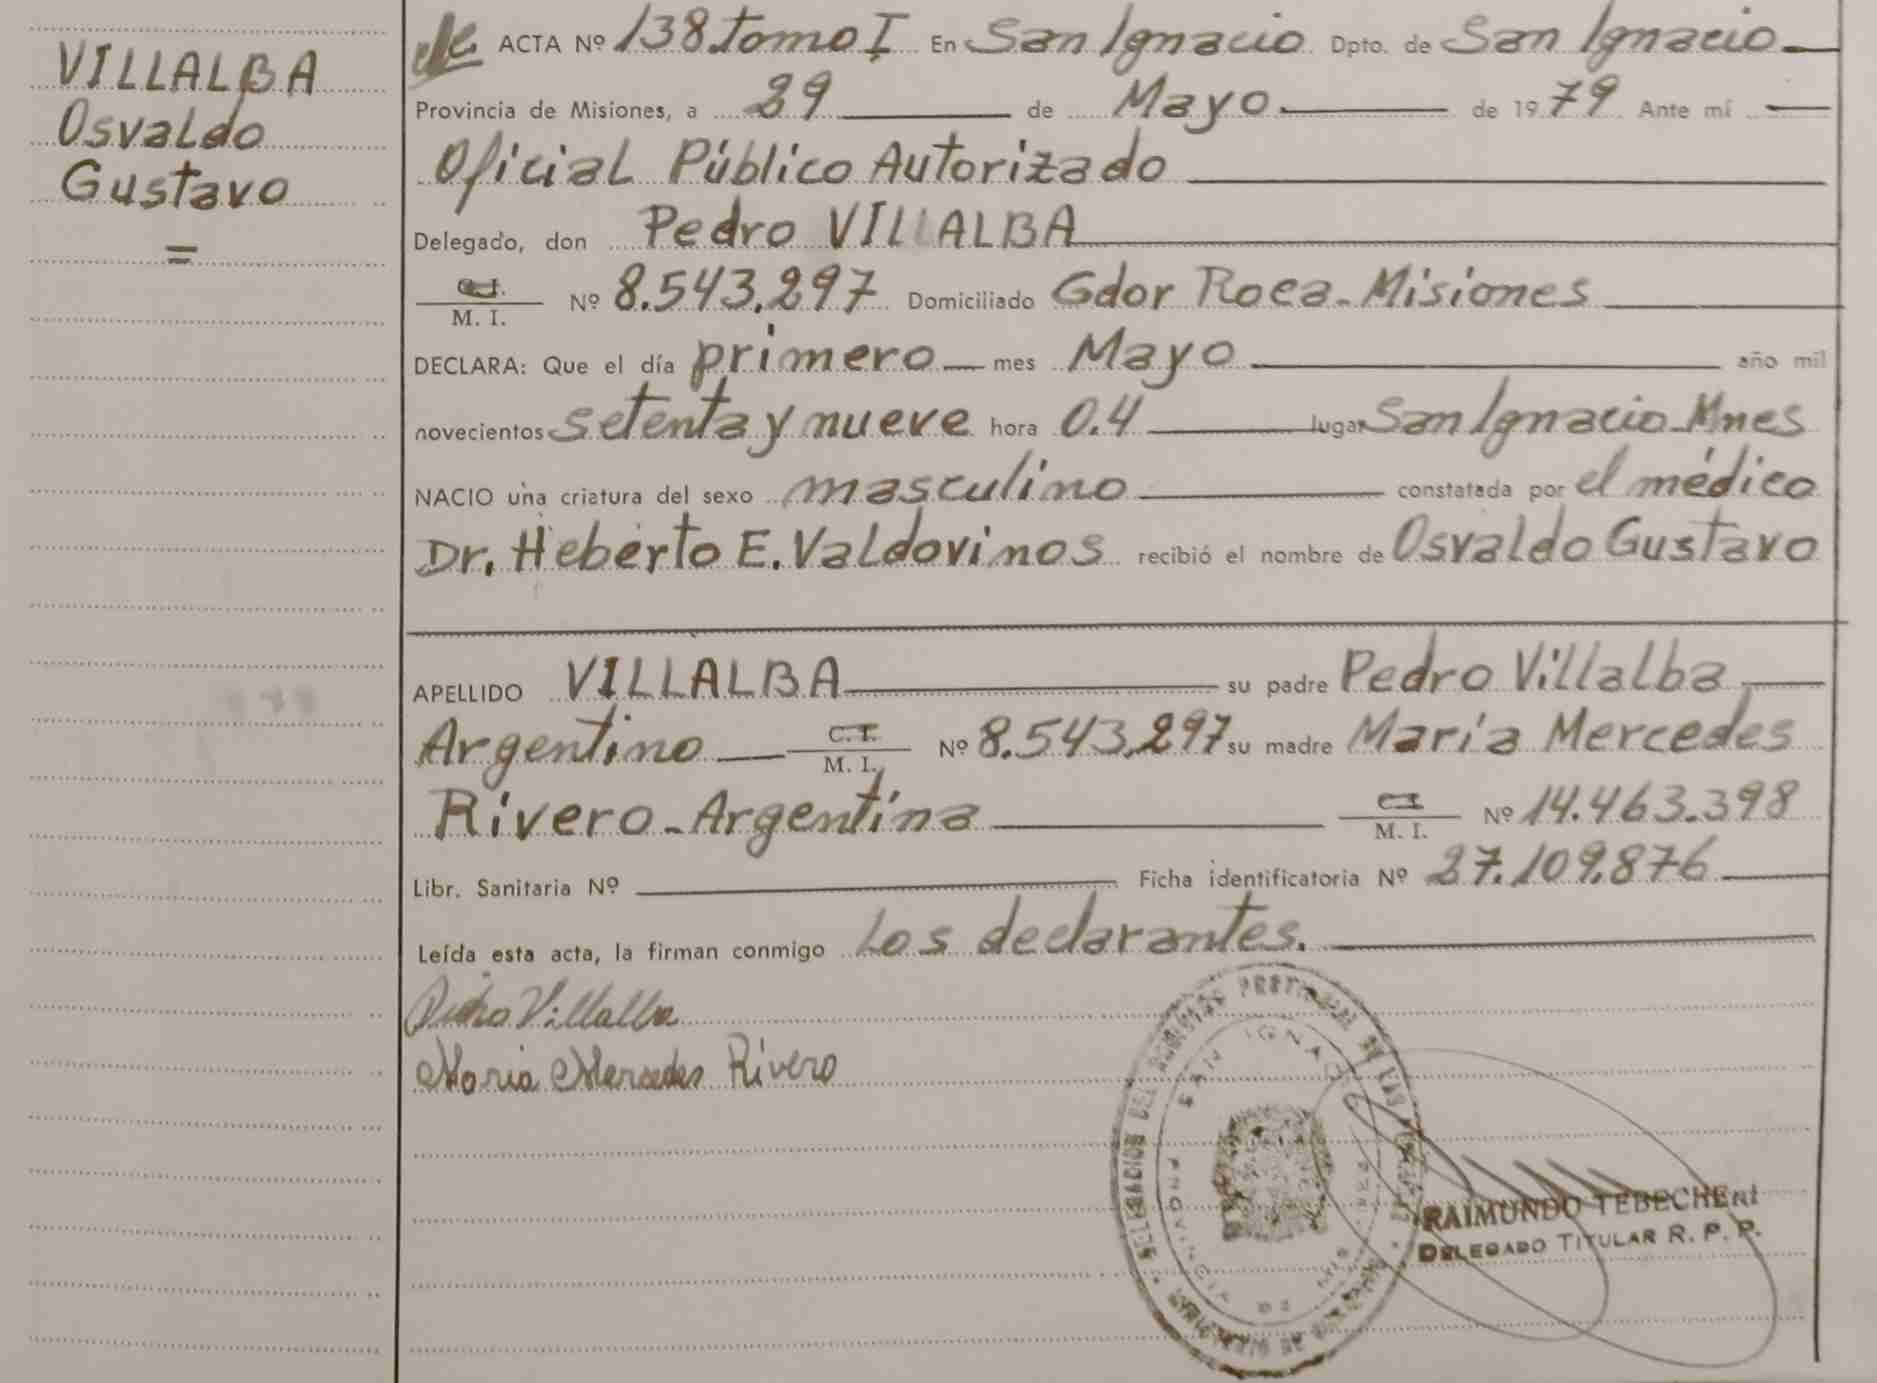 VILLALBA
Osvaldo
Gustavo
=
ACTA Nº 138 tomo I En San Ignacio Dpto. de San Ignacio
Provincia de Misiones, a 29 de Mayo de 1979 Ante mí
Oficial Público Autorizado
Delegado, don Pedro VILLALBA
C.I. M. I. Nº 8.543.297 Domiciliado Gdor Roca - Misiones
DECLARA: Que el día primero mes Mayo año mil
novecientos setenta y nueve hora 0.4 lugar San Ignacio - Mnes
NACIO una criatura del sexo masculino constatada por el médico
Dr. Heberto E. Valdovinos recibió el nombre de Osvaldo Gustavo
APELLIDO VILLALBA su padre Pedro Villalba
Argentino C.I. M. I. Nº 8.543.297 su madre María Mercedes
Rivero - Argentina C.I. M. I. Nº 14.463.398
Libr. Sanitaria Nº Ficha identificatoria Nº 27.109.876
Leída esta acta, la firman conmigo Los declarantes.
Pedro Villalba
Maria Mercedes Rivero
SAN IGNACIO
PROVINCIA DE MISIONES
RAIMUNDO TEBECHERI
DELEGADO TITULAR R. P. P.